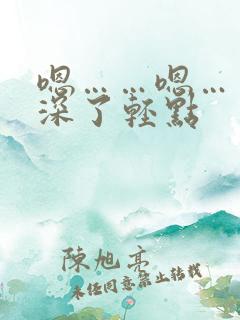 嗯……嗯…
深了輕點
陳旭亮
未任同意禁止轉載